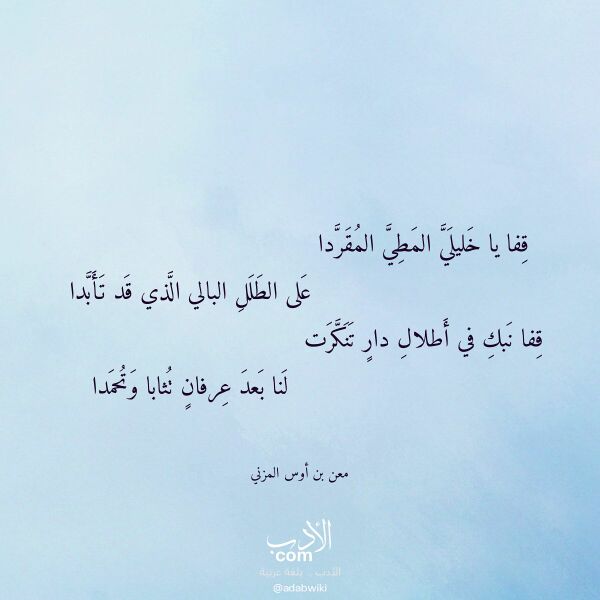 قِفا يا خَليلَيَّ المَطِيَّ المُقَرَّدا
عَلى الطَلَلِ البالي الَّذي قَد تَأَبَّدا
قِفا نَبكِ في أَطلالِ دارٍ تَنَكَّرَت
لَنا بَعدَ عِرفانٍ تُثابا وَتُحمَدا
معن بن أوس المزني
الأدب
com
الأدب .. بلغة عربية
@adabwiki